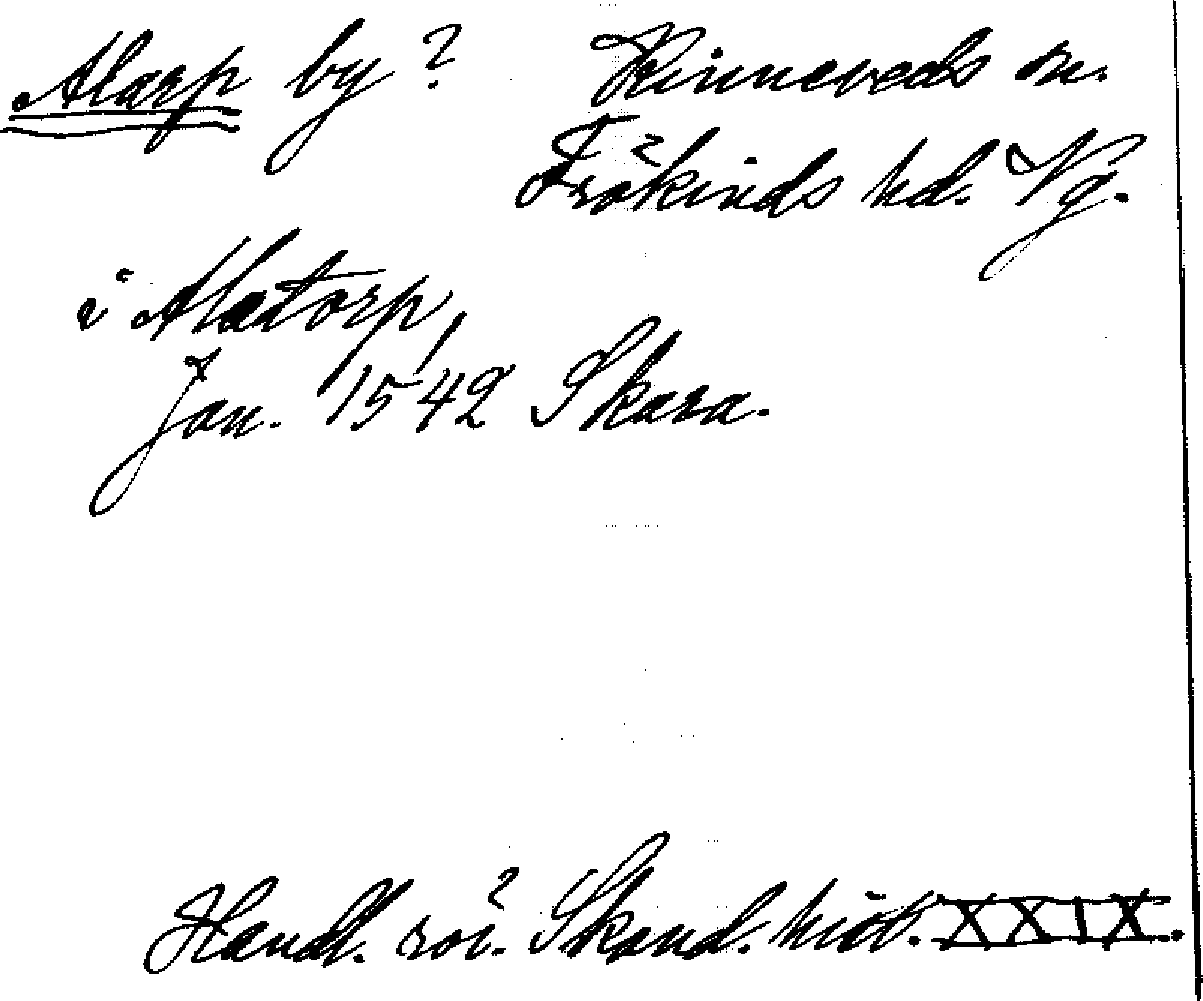 Alarp by? Kinneveds sn.
Frökinds hd. Vg.
i Alatorp,
Jan. 1542 Skara.
Handl. rör. Skand. hist. XXIX.